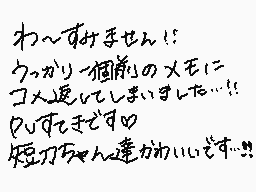 わ〜すみません!!
うっかり一個前のメモに
コメ返してしまいました…!!
PVすてきです♡
短刀ちゃん達かわいいです…!!